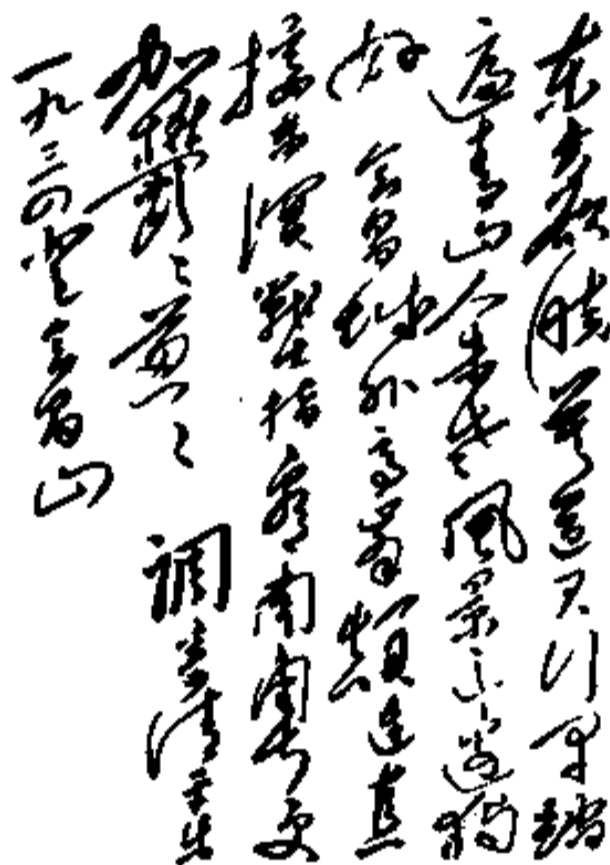 东方欲曉莫道君行早踏
遍青山人未老風景这边独
好 会昌城外高峯顛连直
接东溟戰士指看南粤更
加鬱々葱々 調寄清平乐
一九三四登会昌山